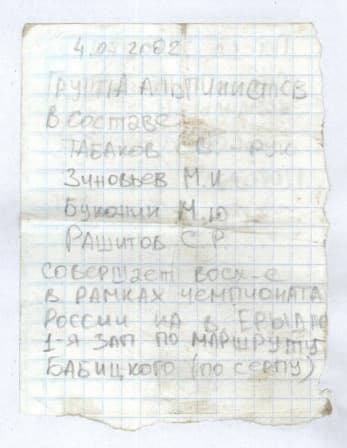 4.07 2002
ГРУППА АЛЬПИНИСТОВ
В СОСТАВЕ:
ТАБАКОВ С.С. - РУК
ЗИНОВЬЕВ М.И
БУКОНИН М.Ю
РАШИТОВ С.Р.
СОВЕРШАЕТ ВОСХ-Е
В РАМКАХ ЧЕМПИОНАТА
РОССИИ НА В. ЕРЫДАГ
1-Я ЗАП ПО МАРШРУТУ
БАБИЦКОГО (ПО СЕРПУ)